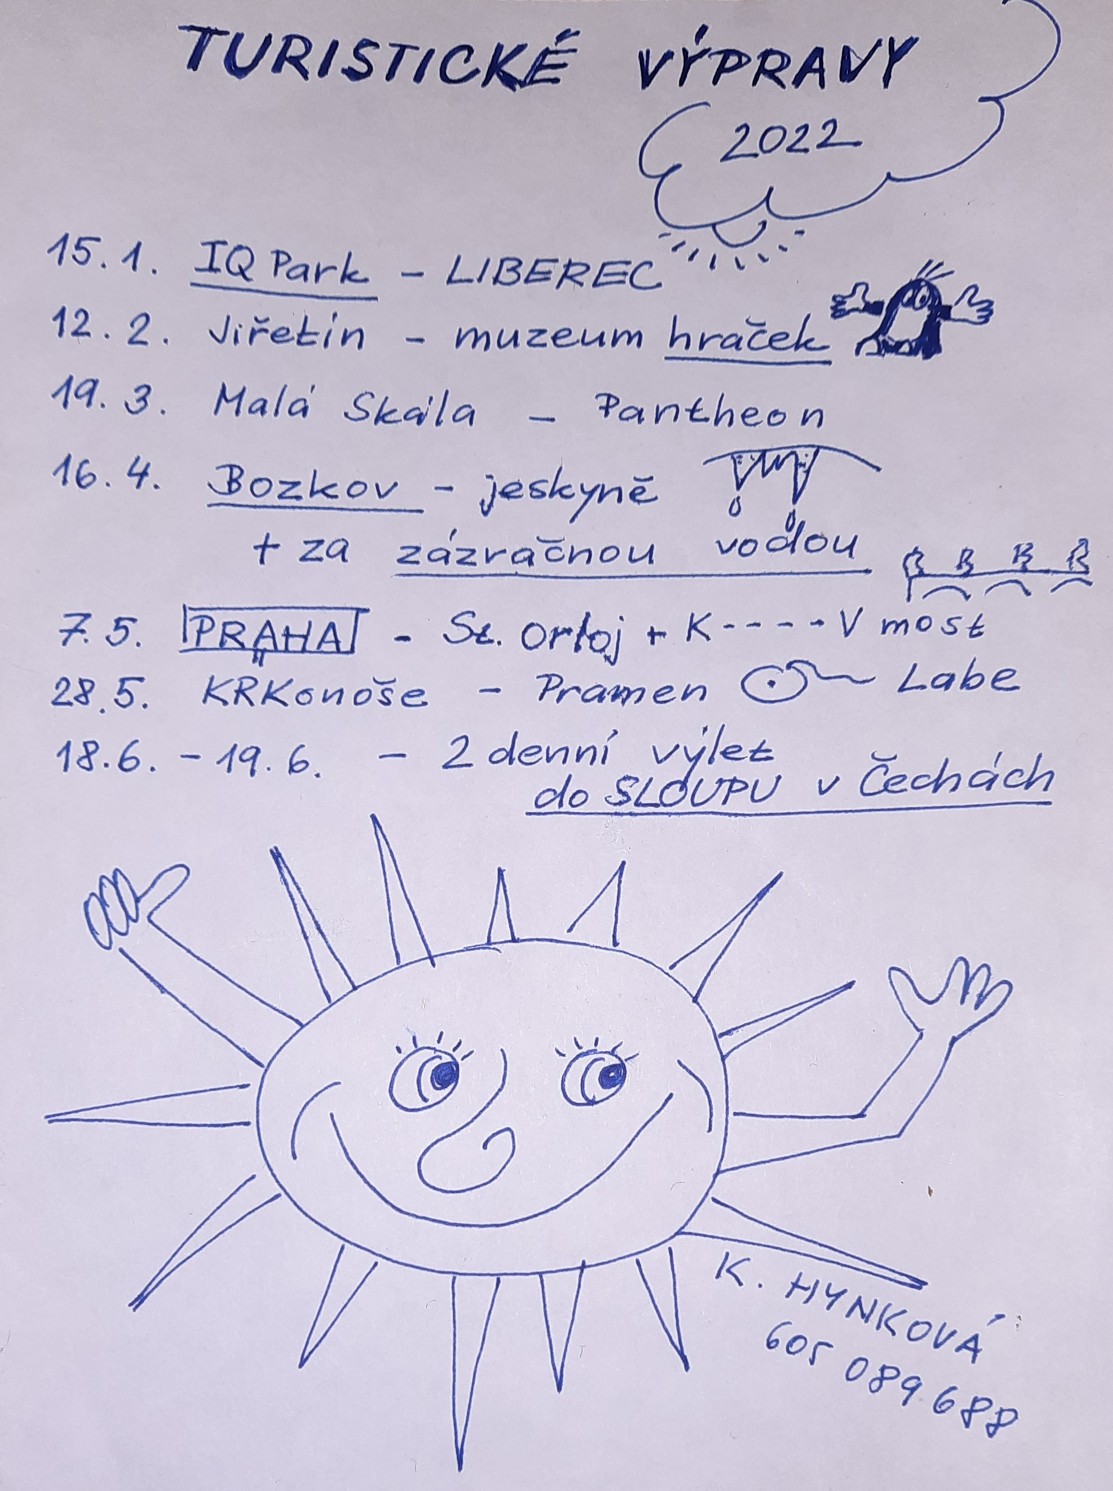 TURISTICKÉ VÝPRAVY
2022
15.1. IQ Park - LIBEREC
12.2. Jiřetín - muzeum hraček
19.3. Malá Skála - Pantheon
16.4. Bozkov - jeskyně
+ za zázračnou vodou
7.5. PRAHA - St. Orloj + K----V most
28.5. KRKonoše - Pramen Labe
18.6. - 19.6. - 2 denní výlet
do SLOUPU v Čechách
K. HYNKOVÁ
605 089 688